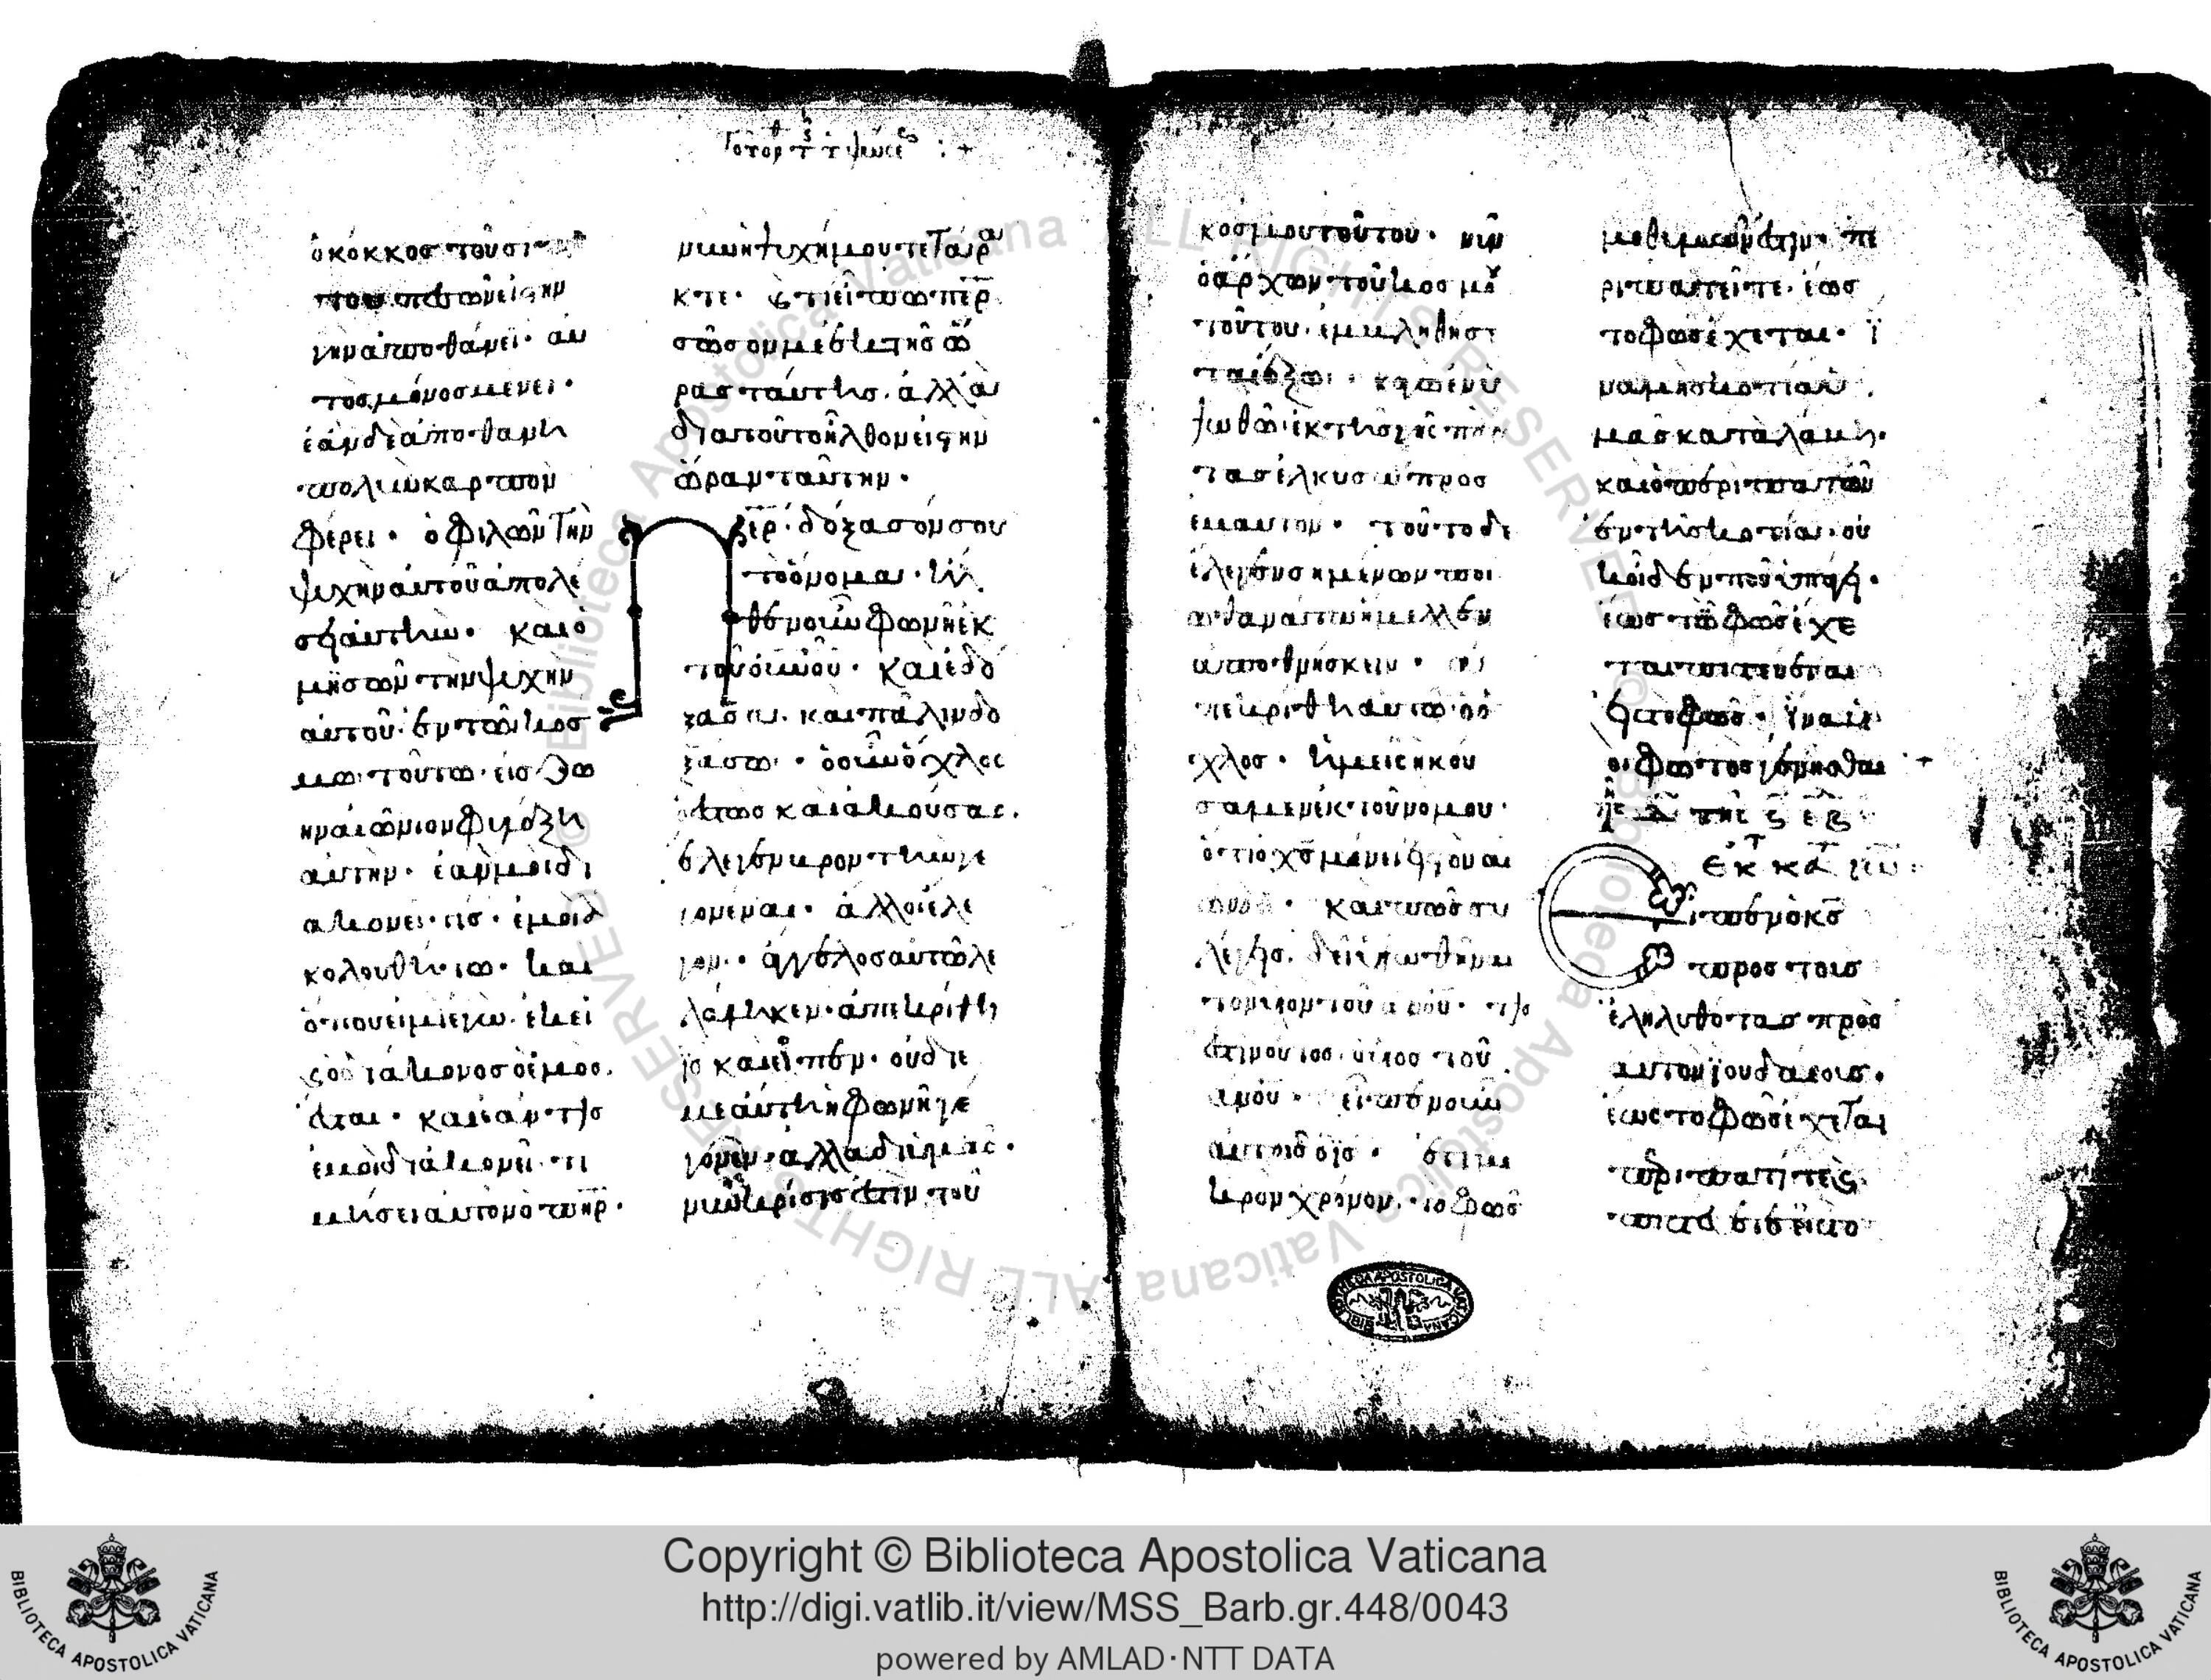 ὁ κόκκος τοῦ σί
του πεσὼν εἰς τὴν
γῆν ἀποθάνει· αυ
τος μόνος μένει·
ἐὰν δὲ ἀποθάνη
πολὺν καρπὸν
φέρει· ὁ φιλῶν τὴν
ψυχὴν αὐτοῦ ἀπολέ
σει αὐτήν· καὶ ὁ
μισῶν τὴν ψυχὴν
αὐτοῦ ἐν τῶ κόσ
μω τούτω· εἰς ζω
ὴν αἰώνιον φυλάξη
αὐτήν· ἐὰν μοὶ δι
ακονεῖ τίς· ἐμοὶ ἀ
κολουθήτω· καὶ
ὅπου εἰμὶ ἐγὼ· ἐκεῖ
ὁ διάκονος ὁ ἐμος·
ἔσται· καὶ ἐάν τις
ἐμοὶ διακονεῖ· τι
μήσει αὐτὸν ὁ πηρ·
νῦν ἡ ψυχή μου τετάρα
κτε· καὶ τί εἴπω περ
σῶσόν με ἐκ τῆς ὥ
ρας ταύτης· ἀλλὰ
διὰ τοῦτο ἦλθον εἰς τὴν
ὥραν ταύτην·
περ· δόξασόν σου
τὸ ὄνομα· ἦλ
θεν οὖν φωνὴ ἐκ
τοῦ οὐνου· καὶ ἐδό
ξασα· καὶ πάλιν δο
ξάσω· ὁ οὖν ὄχλος
ὁ ἑστὼς καὶ ἀκούσας·
ἔλεγεν βροντὴν γε
γονέναι· ἄλλοι ἔλε
γον· ἄγγελος αὐτῶ λε
λάληκεν· ἀπεκρίθη
ις καὶ εἶπεν· οὐ δι ἐ
μὲ αὕτη ἡ φωνὴ γέ
γονεν· ἀλλὰ δι ὑμᾶς·
νῦν κρίσις ἐστὶν τοῦ
κόσμου τούτου· νῦν
ὁ ἄρχων τοῦ κόσμου
τούτου· ἐκβληθήσε
ται ἔξω· κἀγὼ ἐὰν ὑ
ψωθῶ ἐκ τῆς γῆς πάν
τας ἑλκύσω πρὸς
ἐμαυτόν· τοῦτο δὲ
ἔλεγεν σημαίνων ποί
ω θανάτω ἤμελλεν
ἀποθνήσκειν·
ἀπεκρίθη αὐτῶ ὁ ὄ
χλος· ἡμεῖς ἠκού
σαμεν ἐκ τοῦ νόμου·
ὅτι ὁ χς μένει εἰς τὸν αι
ωνα· καὶ πῶς συ
λέγεις· δεῖ ὑψωθῆναι
τὸν υἱὸν τοῦ ανου· τίς
ἐστιν οὗτος ὁ υἱὸς τοῦ
ανου· εἶπεν οὖν
αὐτοῖς ὁ ις· ἔτι μι
κρὸν χρόνον· τὸ φῶς
μεθ ὑμῶν ἐστιν· πε
ριπατεῖτε· ἕως
τὸ φῶς ἔχεται· ἵ
να μὴ σκοτία ὑ
μᾶς καταλάβη·
καὶ ὁ περιπατῶν
ἐν τῆ σκοτία· οὐ
κ οἶδεν ποῦ ὑπάγει·
ἕως τὸ φῶς ἔχε
ται πιστεύεται
εἰς τὸ φῶς· ἵνα υἱ
οὶ φωτὸς γένησθαι
εκ κατ ιω
Εἶπεν ὁ κς
πρὸς τοὺς
ἐληλυθότας πρὸς
αὐτὸν ἰουδαίους·
ἕως τὸ φῶς ἔχεται
Copyright © Biblioteca Apostolica Vaticana
http://digi.vatlib.it/view/MSS_Barb.gr.448/0043
powered by AMLAD·NTT DATA
BIBLIOTECA APOSTOLICA VATICANA
BIBLIOTECA APOSTOLICA VATICANA